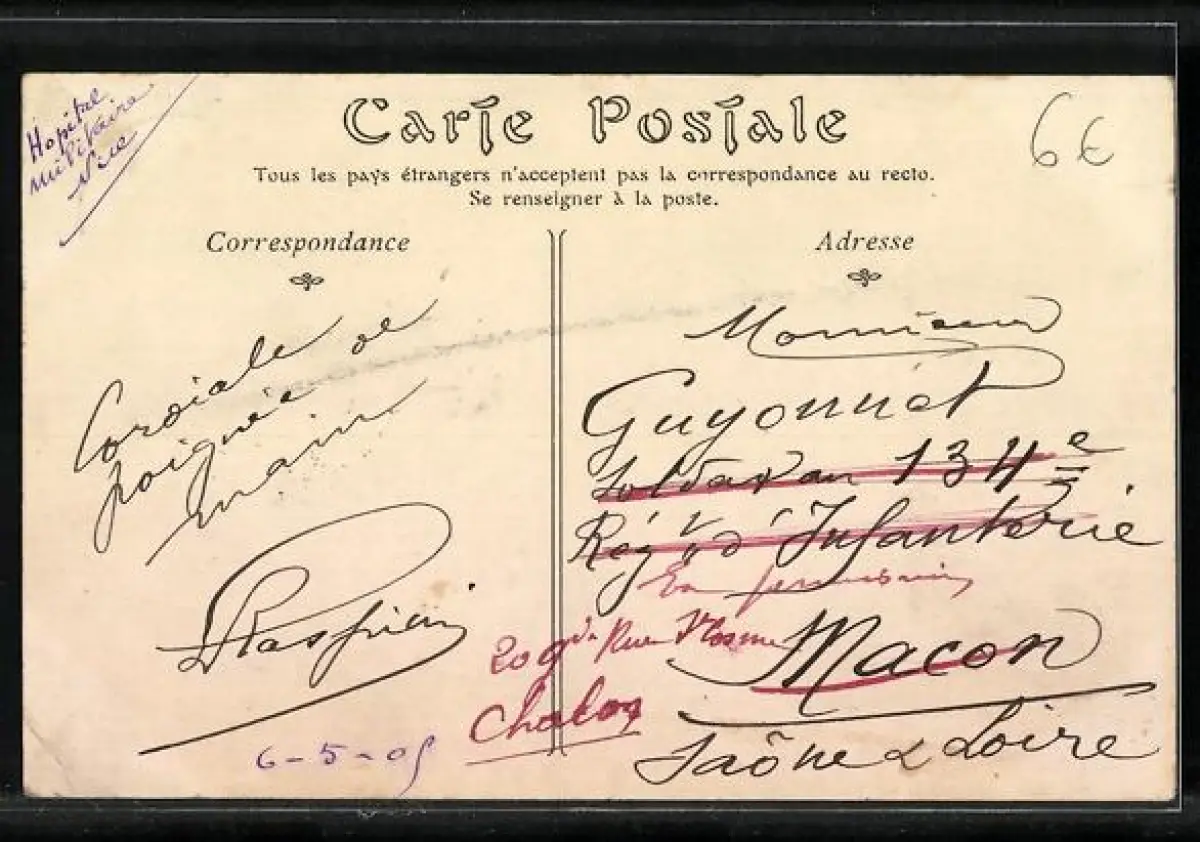 Hopital
militaire
Nice
Carte Postale
6€
Tous les pays étrangers n'acceptent pas la correspondance au recto.
Se renseigner à la poste.
Correspondance
Cordiale
poignée de
main
6-5-05
Adresse
Monsieur
Guyonnet
Soldat au 134e
Régt d'Infanterie
En permission
20 gde Rue
Macon
Chalon
Saône & Loire